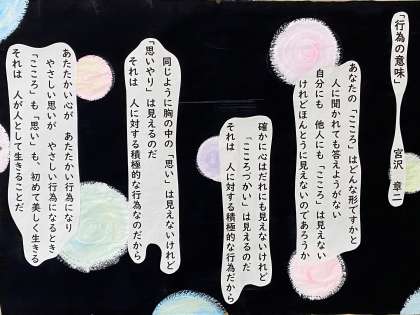 「行為の意味」　宮沢　章二
あなたの「こころ」はどんな形ですかと
人に聞かれても答えようがない
自分にも　他人にも「こころ」は見えない
けれどほんとうに見えないのであろうか
確かに心はだれにも見えないけれど
「こころづかい」は見えるのだ
それは　人に対する積極的な行為だから
同じように胸の中の「思い」は見えないけれど
「思いやり」は見えるのだ
それは　人に対する積極的な行為なのだから
あたたかい心が　あたたかい行為になり
やさしい思いが　やさしい行為になるとき
「こころ」も「思い」も、初めて美しく生きる
それは　人が人として生きることだ